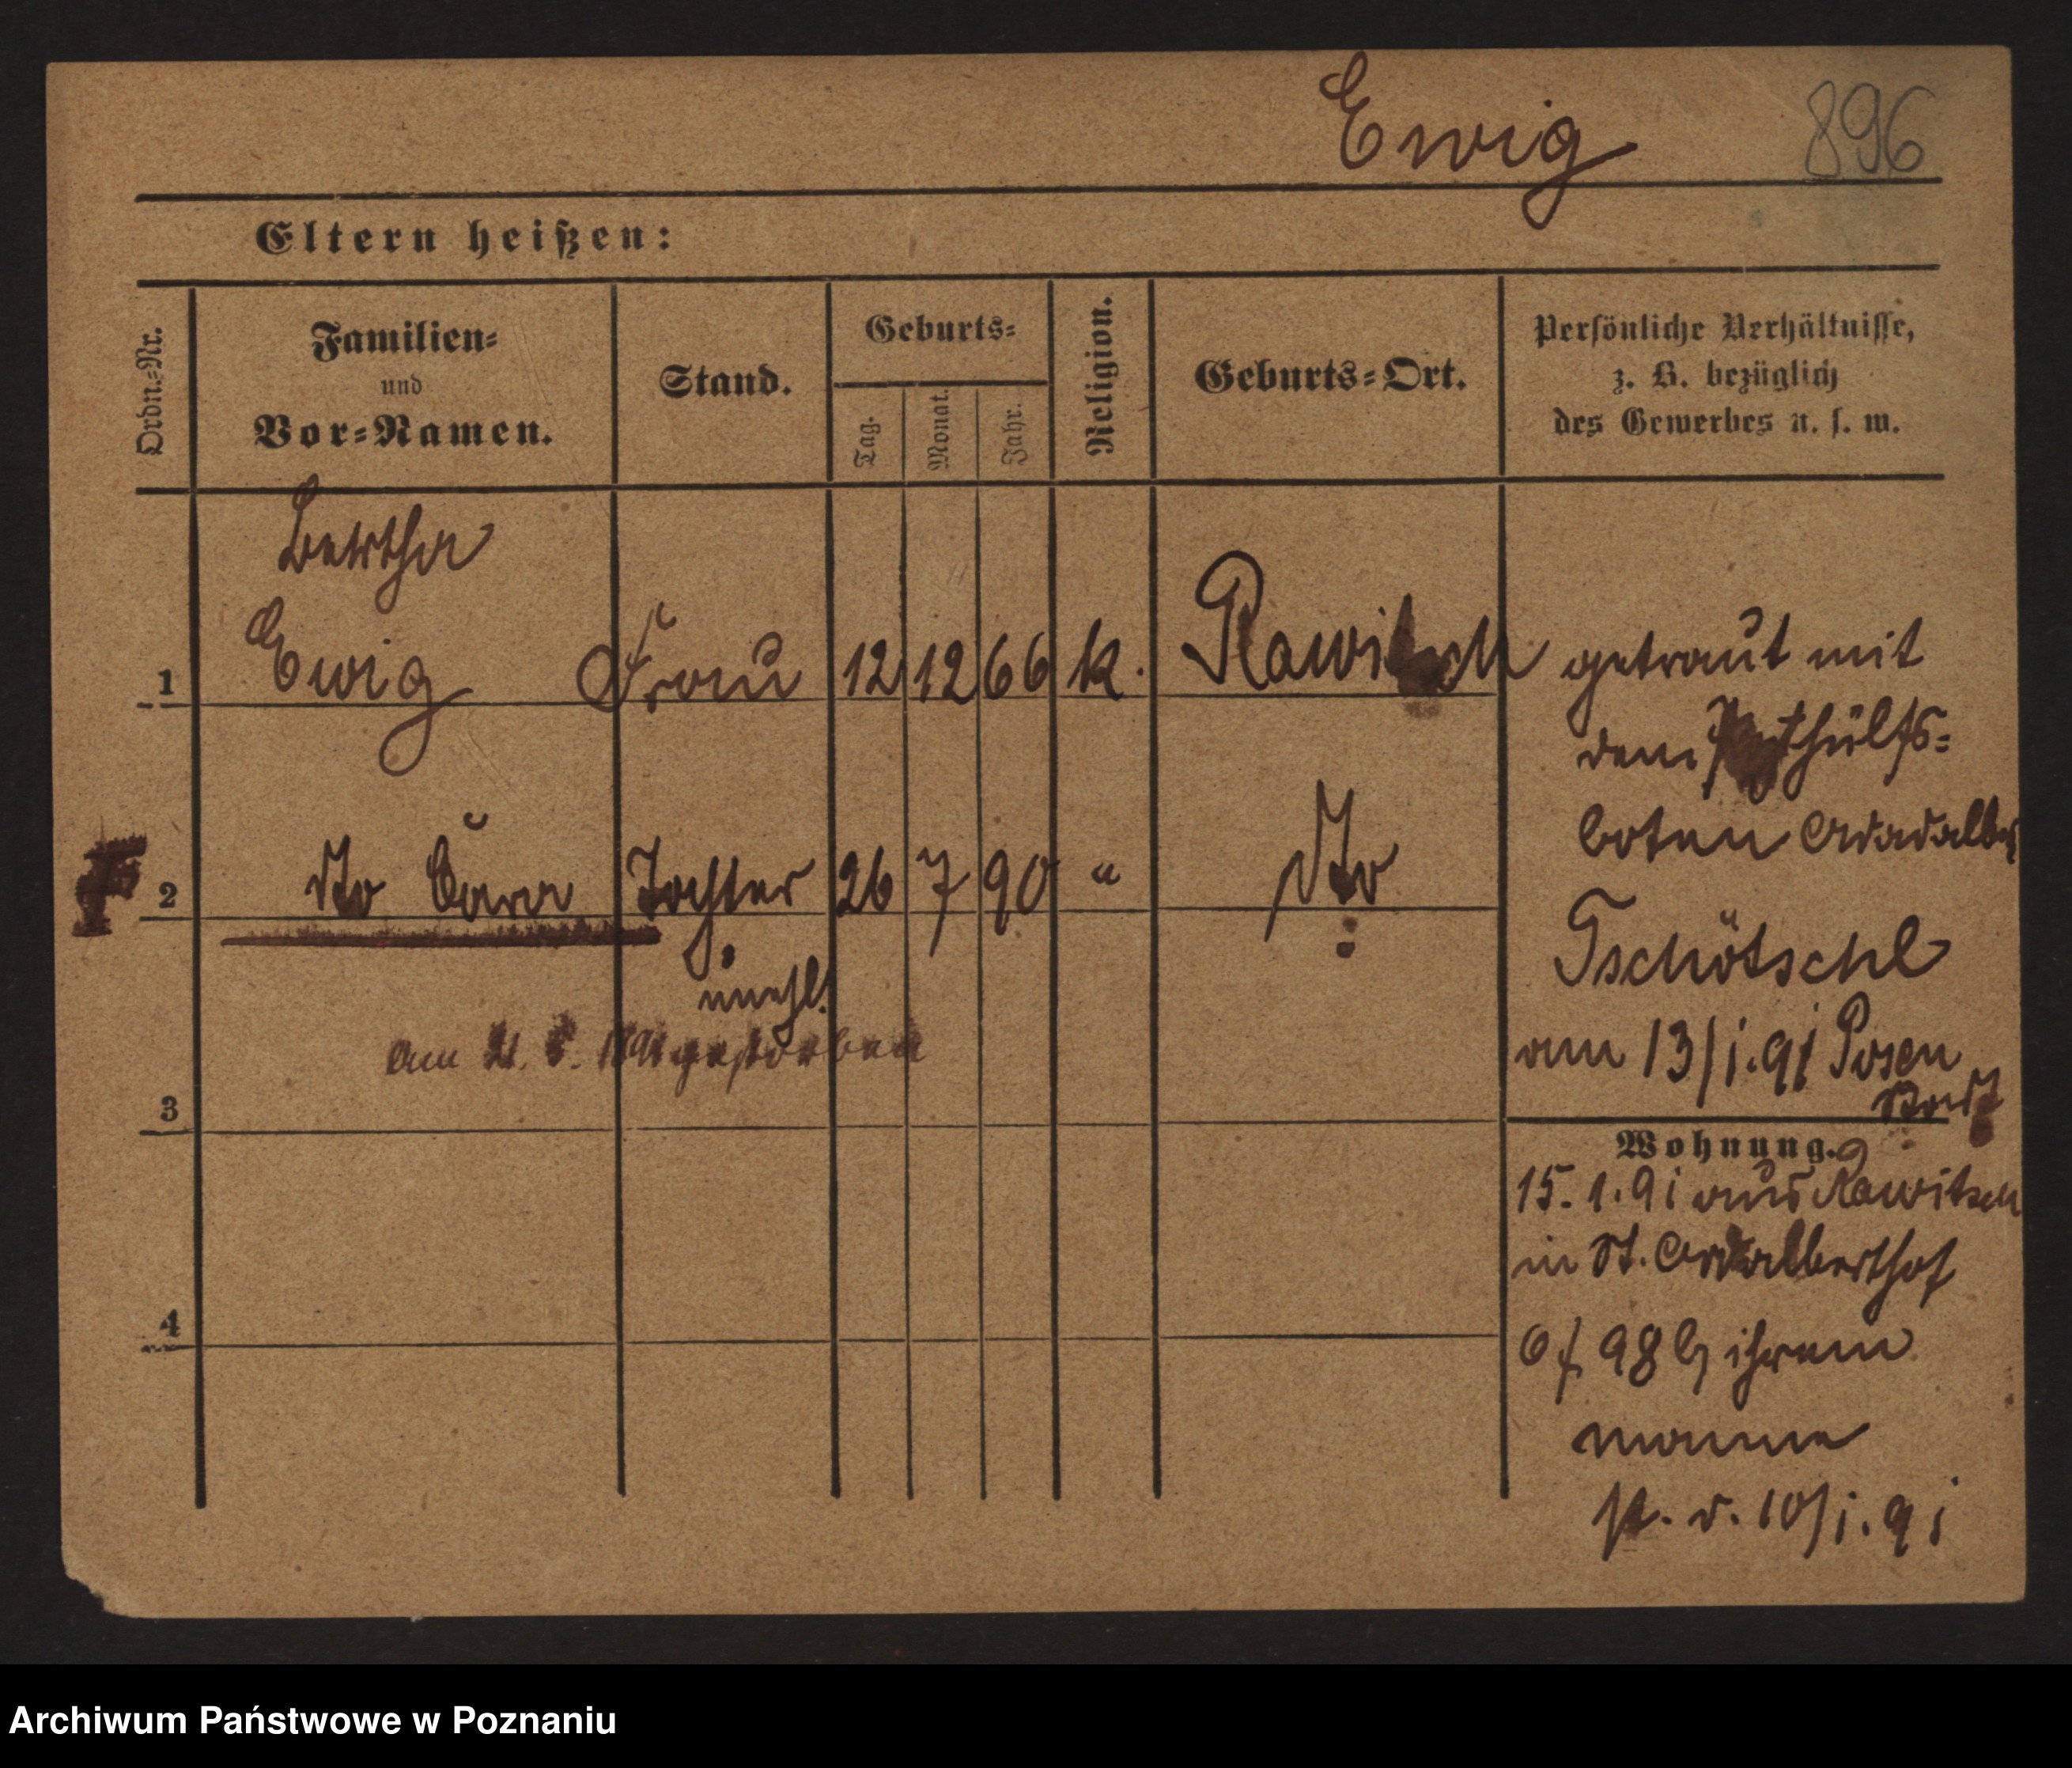 Ewig 896
Eltern heißen:
Ordn.-Nr.
Familien-
und
Vor-Namen.
Stand.
Geburts-
Tag.
Monat.
Jahr.
Religion.
Geburts-Ort.
Persönliche Verhältnisse,
z. B. bezüglich
des Gewerbes u. s. w.
Bertha
1 Ewig Frau 12 12 66 k. Rawitsch
2 Do Clara Tochter 26 7 90 " Do
unehl.
am 21. 1891 gestorben
3
4
getraut mit
dem hülfs-
boten Adalbert
Tschötschel
am 13/1.91 Posen
Stadt
Wohnung.
15.1.91 aus Rawitsch
in St. Adalberthof
98 b ihrem
manne
v. 10/1.91
Archiwum Państwowe w Poznaniu